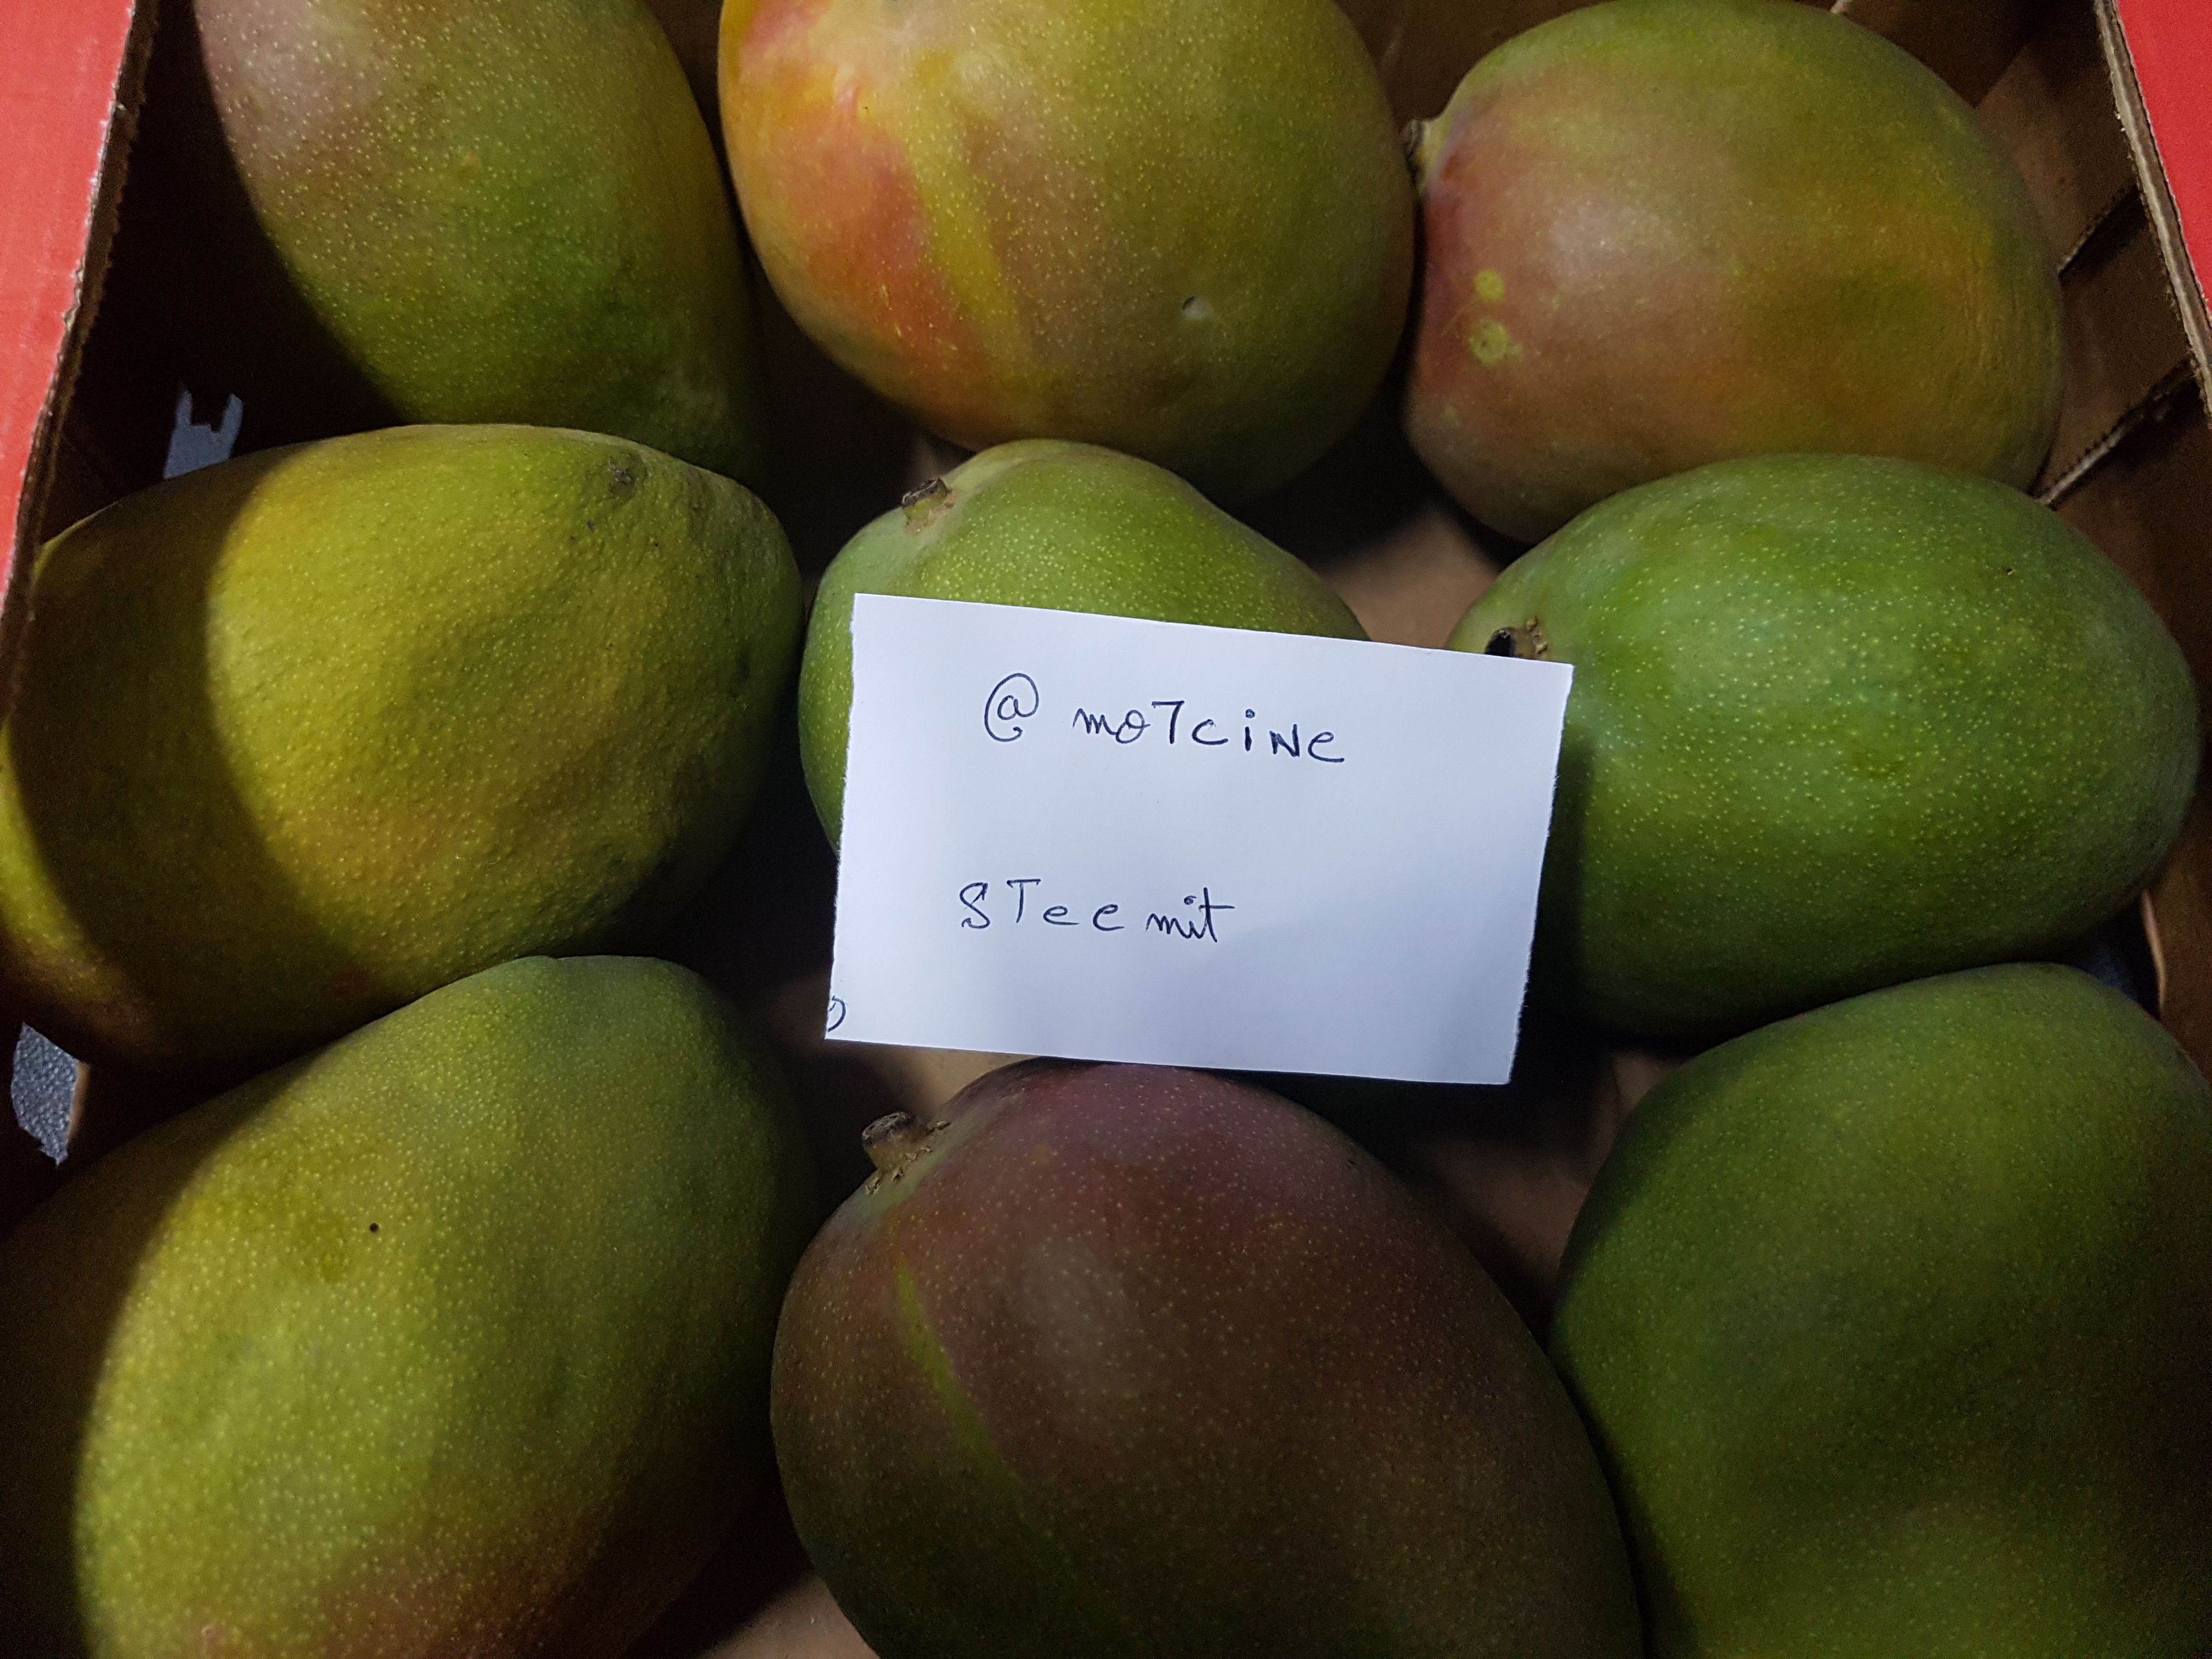 @mo7cine
STeemit